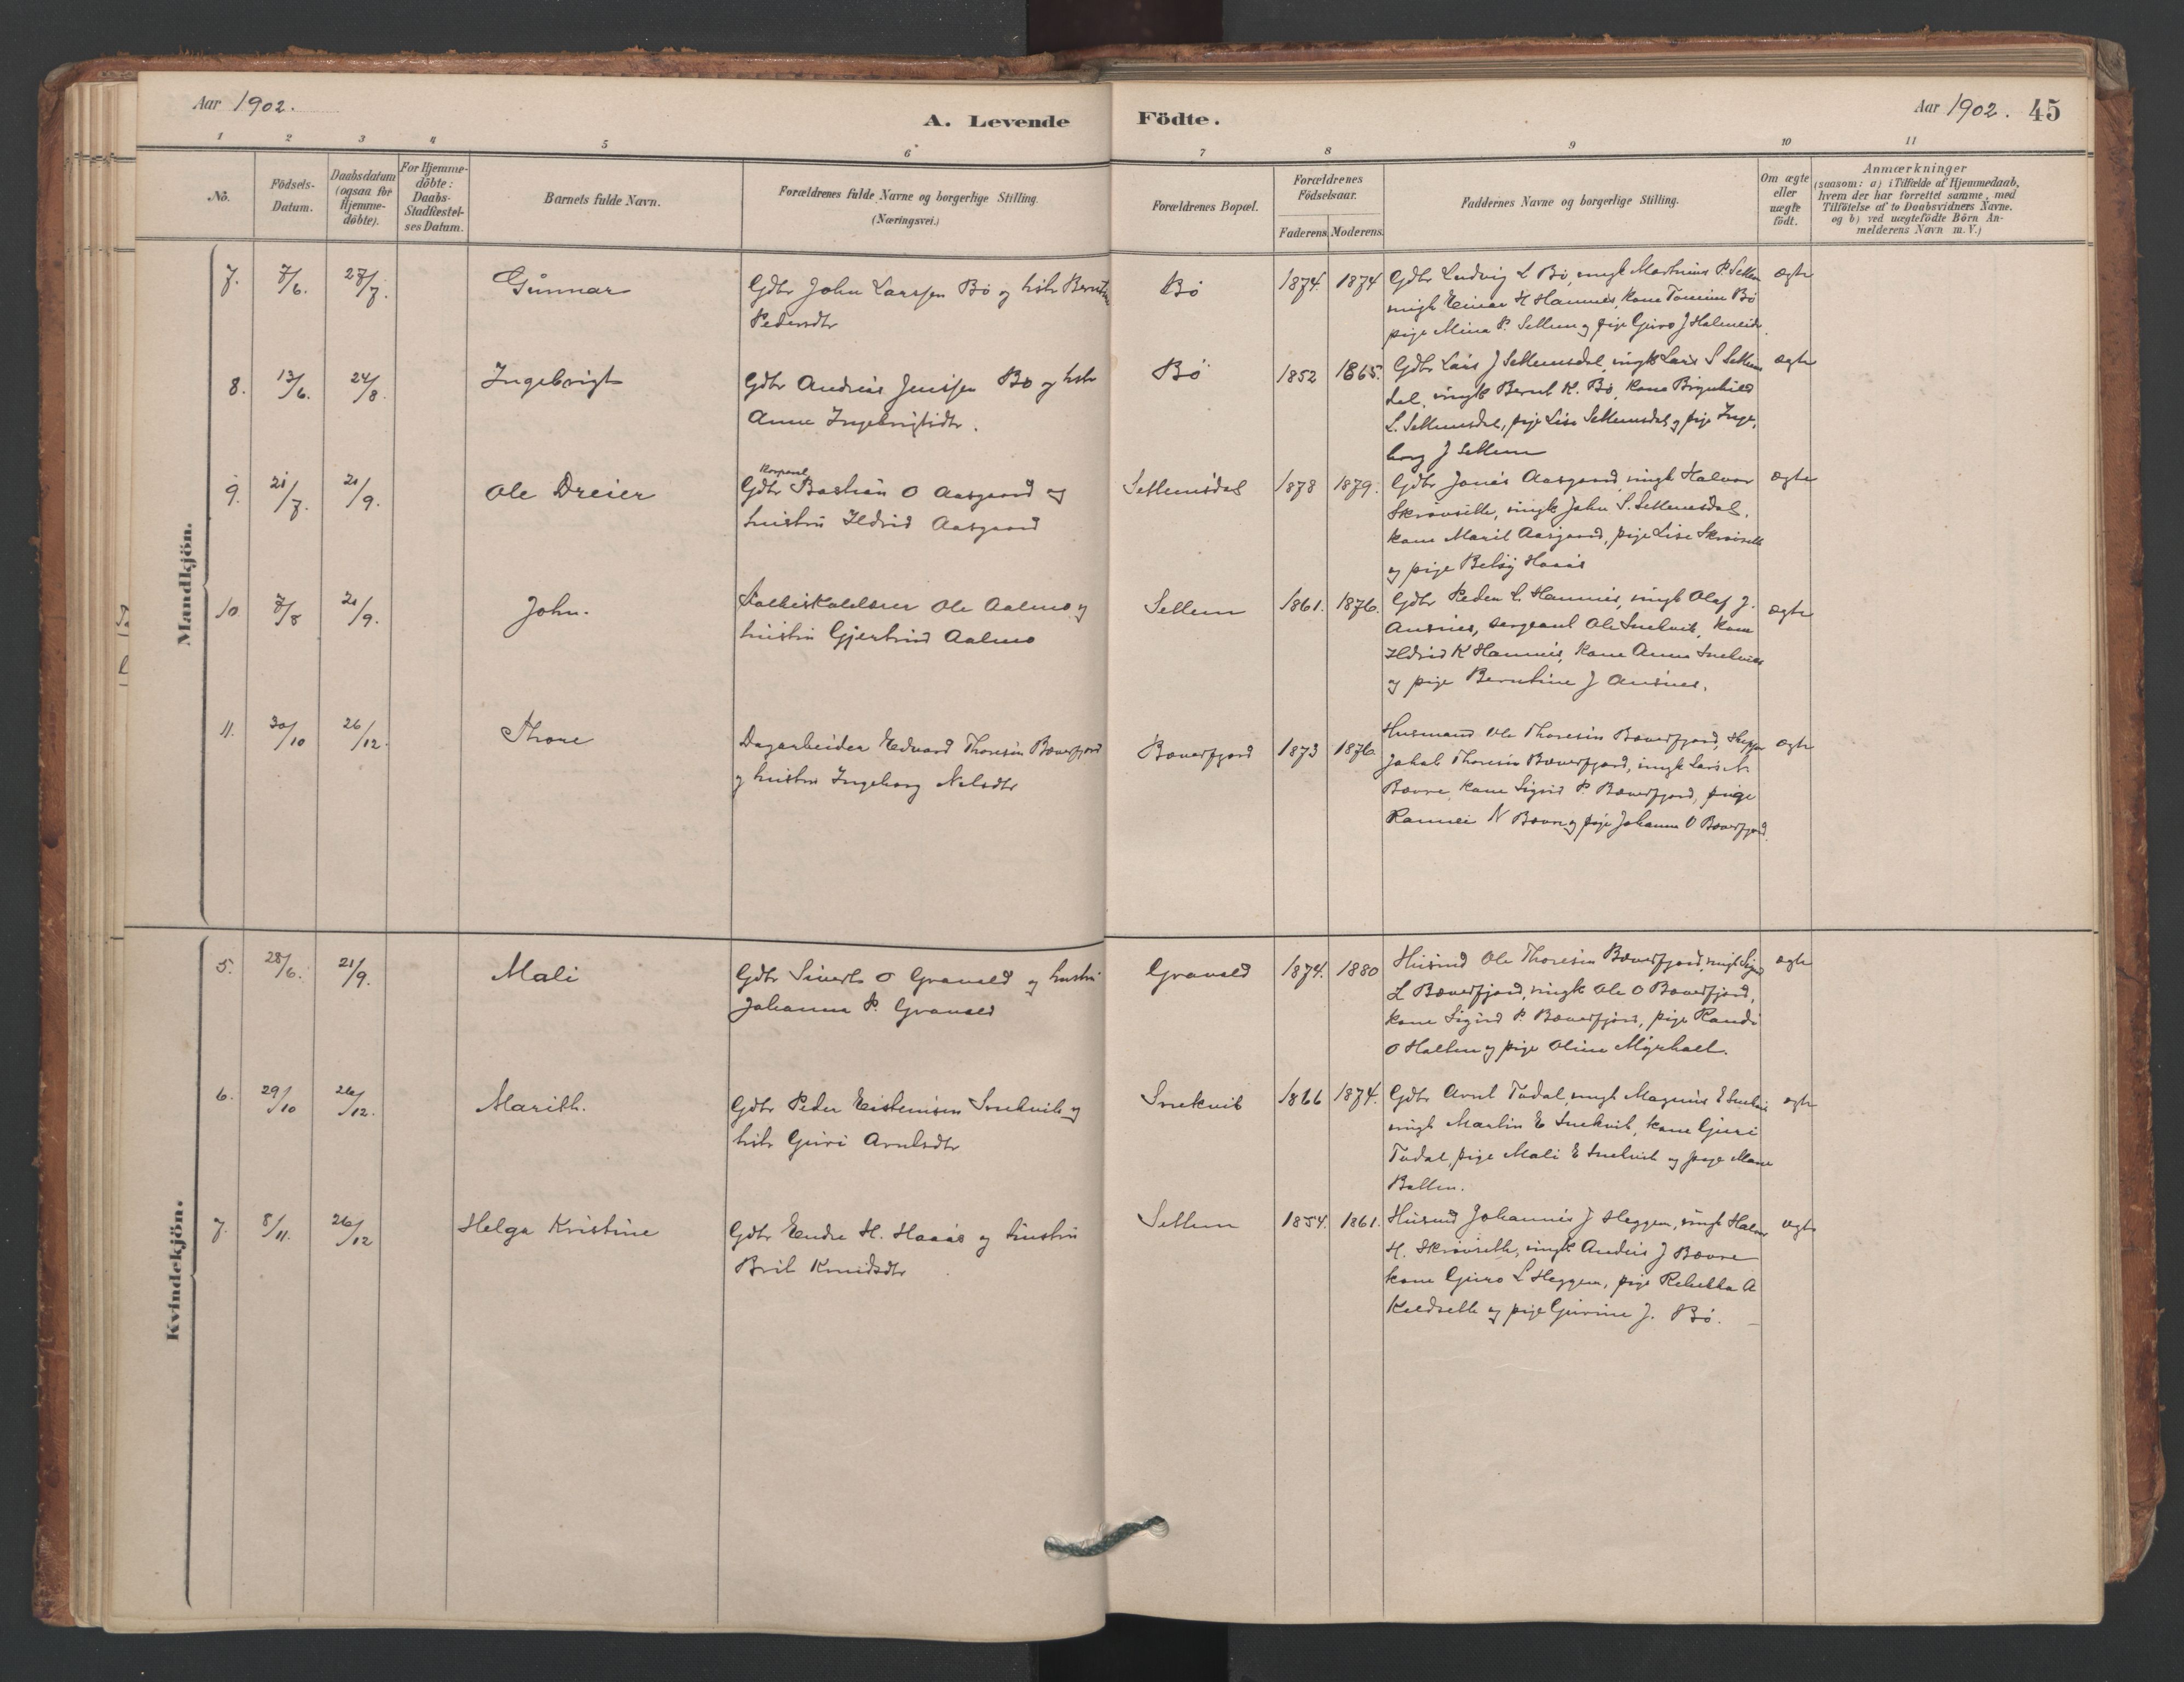 Aar 1902.
A. Levende Födte.
Aar 1902. 45
1 2 3 4 5 6 7 8 9 10 11
No.
Födsels-Datum.
Daabsdatum (ogsaa for Hjemme-döbte).
For Hjemme-döbte: Daabs-Stadfæstel-ses Datum.
Barnets fulde Navn.
Forældrenes fulde Navne og borgerlige Stilling.
(Næringsvei.)
Forældrenes Bopæl.
Forældrenes Födselsaar.
Faderens. Moderens.
Faddernes Navne og borgerlige Stilling.
Om ægte eller uægte födt.
Anmærkninger
(saasom: a) i Tilfælde af Hjemmedaab,
hvem der har forrettet samme, med
Tilföielse af to Daabsvidners Navne.
og b) ved uægtefödte Börn An-
melderens Navn m. V.)
Mandkjön.
7. 7/6. 27/7. Gunnar
Gdbr John Larssen Bö og hstr
Pedersdtr
Bö 1874. 1874
Gdbr Ludvig L Bö, ungk Martinus P. Settem
ungk Einar H Hamnes, kone Bö
pige Mina P. Settem og pige Guro J Halmeide.
ægte
8. 13/6. 24/8. Ingebrigt
Gdbr Andreas Jenssen Bö og hstr
Anne Ingebrigtsdtr.
Bö 1852 1865.
Gdbr Lars J Settemsdal, ungk Lars S Settems
dal, ungk Bernt K. Bö, kone Brynhild
L. Settemsdal, pige Lise Settemsdal og pige Inge,
borg J Settem
ægte
9. 21/7. 21/9. Ole Dreier
Korporal
Gdbr Bastian O Aasgaard og
hustru Ildrid Aasgaard
Settemsdal 1878 1879.
Gdbr Jonas Aasgaard, ungk Halvor
Skrövseth, ungk John S. Settemsdal,
kone Marit Aasgaard, pige Lise Skrövseth
og pige Betsy Haaas
ægte
10 7/8 21/9. John.
Ole Aalmo og
hustru Gjertrud Aalmo
Settem 1861. 1876.
Gdbr Peder L. Hamnes, ungk Olaf J.
Ausnes, sergeant Ole Snekvik, kone
Ildrid K Hamnes, kone Anne Snekvik
og pige Berntine J Ausnes.
ægte
11. 30/10 26/12. Thore
Dagarbeider Edvard Thoresen Bæverfjord
og hustru Ingeborg Nelsdtr
Bæverfjord 1873 1876.
Husmand Ole Thoresen Bæverfjord,
Jakob Thoresen Bæverfjord, ungk Lars N.
Bævre, kone Sigrid P. Bæverfjord, pige
Rannei N Bævre og pige Johanna O Bæverfjord.
ægte
Kvindekjön.
5. 28/6. 21/9. Mali
Gdbr Sivert O Gravald og hustru
Johanna P. Gravald
Gravald 1874. 1880
Husmd Ole Thoresen Bæverfjord, ungk
L Bæverfjord, ungk Ole O Bæverfjord,
kone Sigrid P. Bæverfjord, pige Randi
O Holten og pige Oline Myrholt.
ægte
6. 29/10 26/12. Marith.
Gdbr Peder Eistensen Snekvik og
hstr Guri Arntsdtr
Snekvik 1866 1874.
Gdbr Arnt Todal, ungk Magnus E Snekvik
ungk Martin E Snekvik, kone Guri
Todal, pige Mali E Snekvik og pige
ægte
7. 8/11. 26/12 Helga Kristine
Gdbr Endre H. Haaas og hustru
Brit Knudsdtr
Settem 1854. 1861.
Husmd Johannes J Heggem, ungk Halvor
H. Skrövseth, ungk Anders J Bævre
kone Guro L Heggem, pige Rebekka A
Kvedseth og pige Gurine J. Bö.
ægte